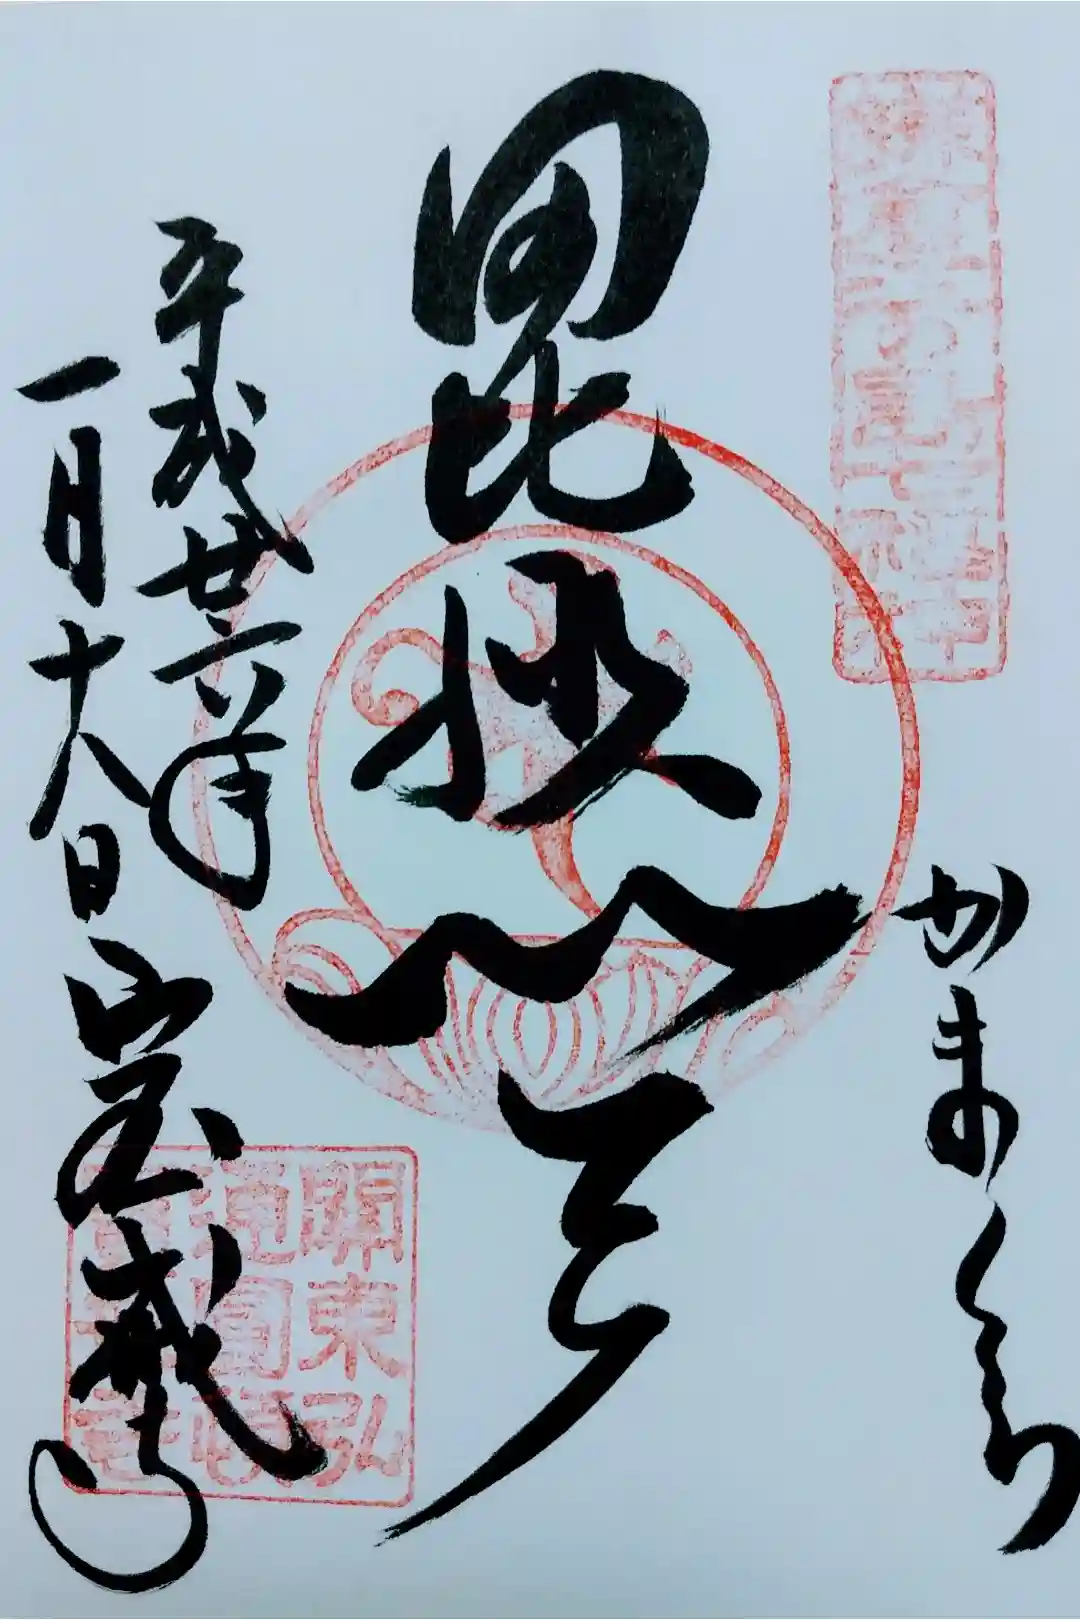 かまくら
毘沙門天
平成廿六年
一月十八日
宝戒寺
關東弘
通圓頓